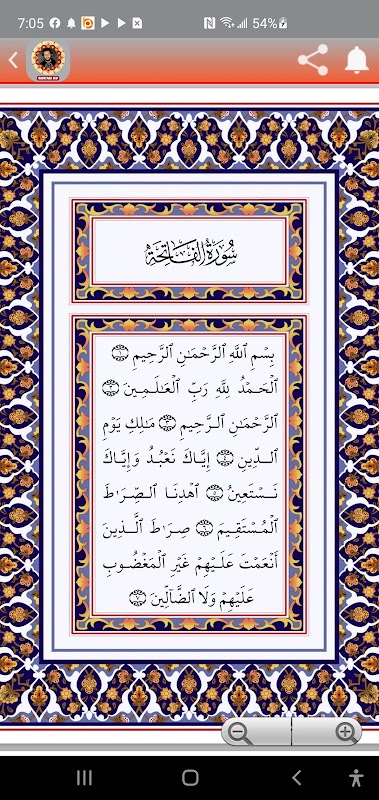 7:05
54%
سُورَةُ الفَاتِحَةِ
بِسْمِ ٱللَّهِ ٱلرَّحْمَـٰنِ ٱلرَّحِيمِ ۝١
ٱلْحَمْدُ لِلَّهِ رَبِّ ٱلْعَـٰلَمِينَ ۝٢
ٱلرَّحْمَـٰنِ ٱلرَّحِيمِ ۝٣ مَـٰلِكِ يَوْمِ
ٱلدِّينِ ۝٤ إِيَّاكَ نَعْبُدُ وَإِيَّاكَ
نَسْتَعِينُ ۝٥ ٱهْدِنَا ٱلصِّرَٰطَ
ٱلْمُسْتَقِيمَ ۝٦ صِرَٰطَ ٱلَّذِينَ
أَنْعَمْتَ عَلَيْهِمْ غَيْرِ ٱلْمَغْضُوبِ
عَلَيْهِمْ وَلَا ٱلضَّآلِّينَ ۝٧